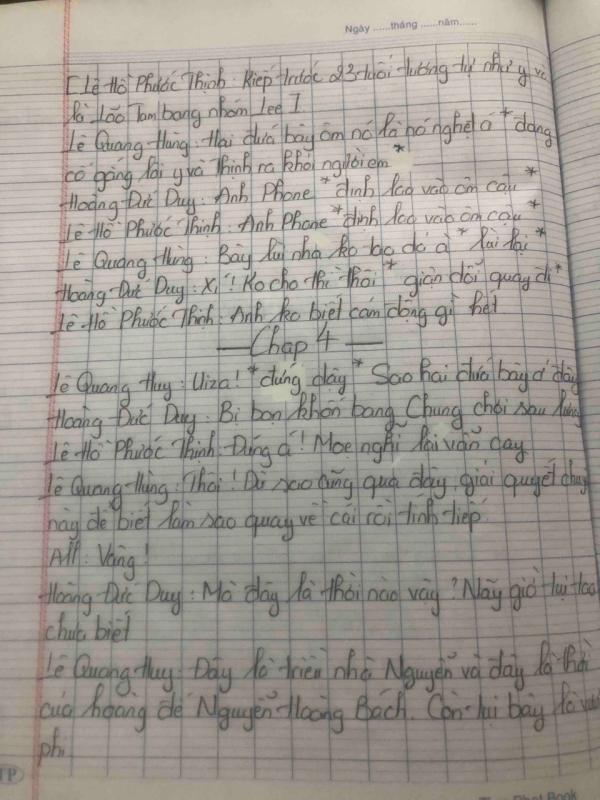 Ngày ......tháng ......năm......
[Lê Hồ Phước Thịnh : Kiếp trước 23 tuổi tương tự như y và
là Lão Tam bang nhóm Lee]
Lê Quang Hùng : Hai đứa bây ôm nó là nó nghẹt á * đang
cố gắng lôi y và Thịnh ra khỏi người em *
Hoàng Đức Duy : Anh Phone * định lao vào ôm cậu *
Lê Hồ Phước Thịnh : Anh Phone * định lao vào ôm cậu *
Lê Quang Hùng : Bây lùi nha ko lao đó à * lùi lại *
Hoàng Đức Duy : Xí ! Ko cho thì thôi * giận dỗi quay đi *
Lê Hồ Phước Thịnh : Anh ko biết cảm động gì hết
— Chap 4 —
Lê Quang Huy : Uiza ! * đứng dậy * Sao hai đứa bây ở đây
Hoàng Đức Duy : Bị bọn khốn bang Chung chơi sau lưng
Lê Hồ Phước Thịnh : Đúng á ! Moe nghĩ lại vẫn cay
Lê Quang Hùng : Thôi ! Dù sao cũng qua đây giải quyết chuy
này để biết làm sao quay về cái rồi tính tiếp
All : Vâng !
Hoàng Đức Duy : Mà đây là thời nào vậy ? Nãy giờ tụi tao
chưa biết
Lê Quang Huy : Đây là triều nhà Nguyễn và đây là thời
của hoàng đế Nguyễn Hoàng Bách. Còn tụi bây là
phi
TP
Book